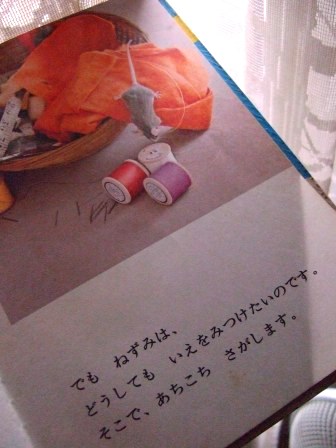 でも　ねずみは、
どうしても　いえをみつけたいのです。
そこで、あちこち　さがします。